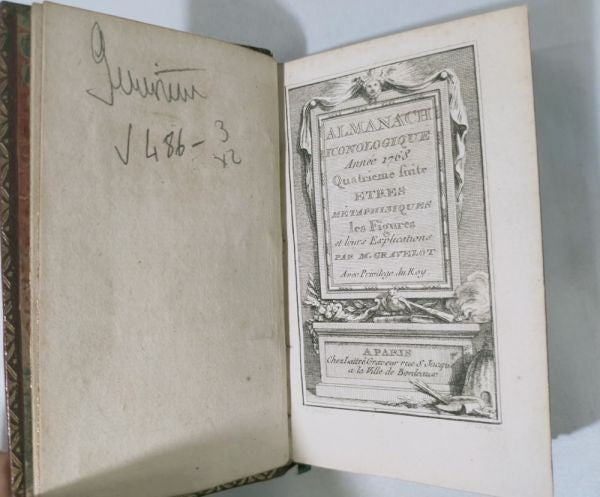 √ 486 – 3
ALMANACH
ICONOLOGIQUE
Année 1768
Quatrieme suite
ETRES
METAPHISIQUES
les Figures
et leurs Explications
PAR M. GRAVELOT
Avec Privilege du Roy
A PARIS
Chez Lattré Graveur rue St Jacques
a la Ville de Bordeaux